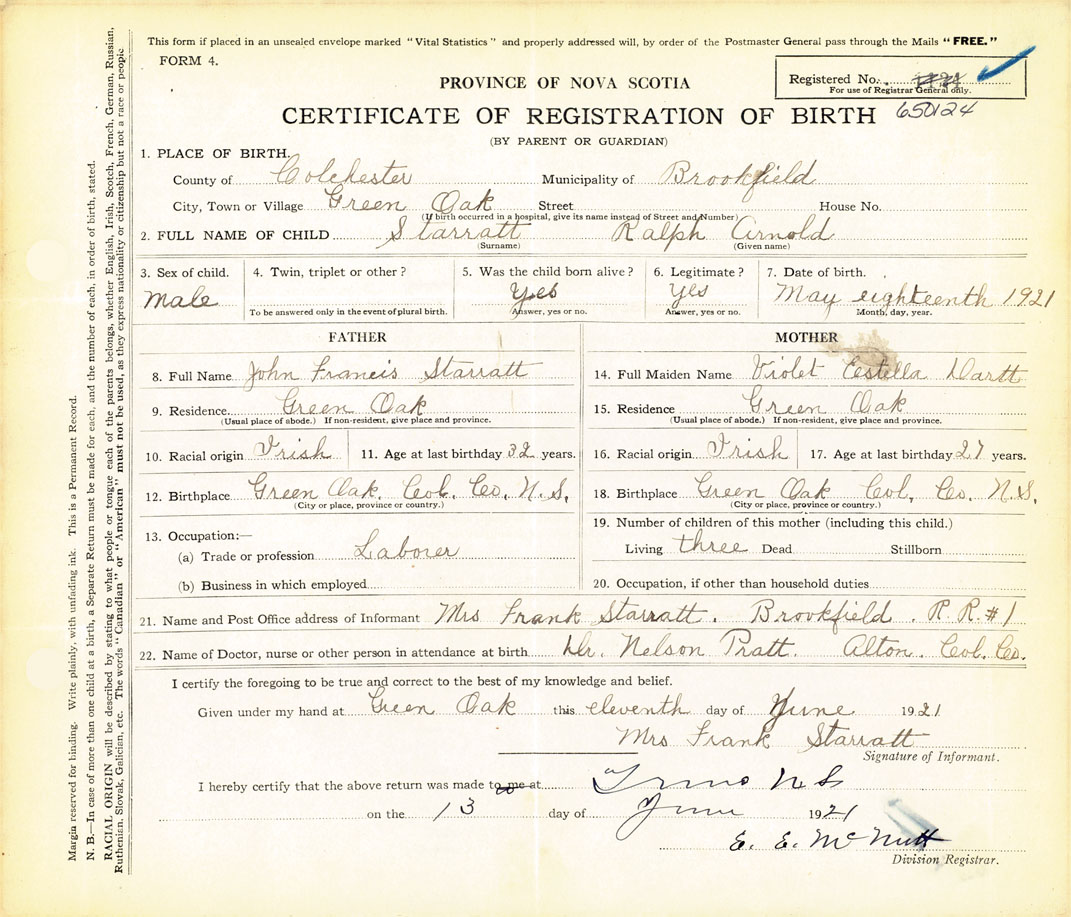 This form if placed in an unsealed envelope marked "Vital Statistics" and properly addressed will, by order of the Postmaster General pass through the Mails "FREE."
FORM 4.
Registered No.
For use of Registrar General only.
PROVINCE OF NOVA SCOTIA
CERTIFICATE OF REGISTRATION OF BIRTH 650124
(BY PARENT OR GUARDIAN)
1. PLACE OF BIRTH.
County of Colchester Municipality of Brookfield
City, Town or Village Green Oak Street House No.
(If birth occurred in a hospital, give its name instead of Street and Number)
2. FULL NAME OF CHILD Starratt Ralph Arnold
(Surname) (Given name)
3. Sex of child. 4. Twin, triplet or other? 5. Was the child born alive? 6. Legitimate? 7. Date of birth.
male Yes Yes May eighteenth 1921
To be answered only in the event of plural birth. Answer, yes or no. Answer, yes or no. Month, day, year.
FATHER
8. Full Name John Francis Starratt
9. Residence Green Oak
(Usual place of abode.) If non-resident, give place and province.
10. Racial origin Irish 11. Age at last birthday 32 years.
12. Birthplace Green Oak. Col. Co. N.S.
(City or place, province or country.)
13. Occupation:—
(a) Trade or profession Laborer
(b) Business in which employed
MOTHER
14. Full Maiden Name Violet Estella Dartt
15. Residence Green Oak
(Usual place of abode.) If non-resident, give place and province.
16. Racial origin Irish 17. Age at last birthday 27 years.
18. Birthplace Green Oak Col. Co. N.S.
(City or place, province or country.)
19. Number of children of this mother (including this child.)
Living three Dead Stillborn
20. Occupation, if other than household duties
21. Name and Post Office address of Informant Mrs Frank Starratt. Brookfield. R.R.#1
22. Name of Doctor, nurse or other person in attendance at birth Dr. Nelson Pratt. Alton. Col. Co.
I certify the foregoing to be true and correct to the best of my knowledge and belief.
Given under my hand at Green Oak this eleventh day of June 1921
Mrs Frank Starratt
Signature of Informant.
I hereby certify that the above return was made to me at Truro N S
on the 13 day of June 1921
E. E. McNutt
Division Registrar.
Margin reserved for binding. Write plainly, with unfading ink. This is a Permanent Record.
N. B.—In case of more than one child at a birth, a Separate Return must be made for each, and the number of each, in order of birth, stated.
RACIAL ORIGIN will be described by stating to what people or tongue each of the parents belongs, whether English, Irish, Scotch, French, German, Russian,
Ruthenian, Slovak, Galician, etc. The words "Canadian" or "American" must not be used, as they express nationality or citizenship but not a race or people